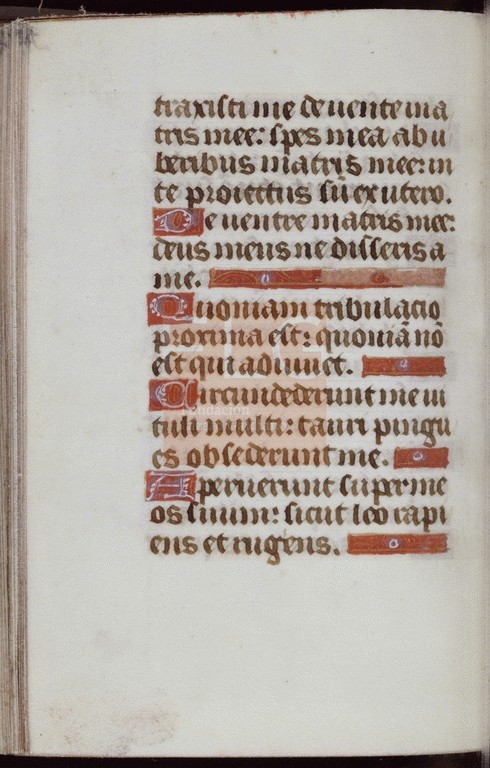 traxisti me de uentre ma
tris mee: spes mea ab u
beribus matris mee: in
te proiectus sū ex utero.
De uentre matris mee:
deus meus ne discesseris a
me.
Quoniam tribulacio
proxima est: quoniā nō
est qui adiuuet.
Circumdederunt me ui
tuli multi: tauri pingu
es obsederunt me.
Aperuerunt super me
os suum: sicut leo rapi
ens et rugiens.
Fundación